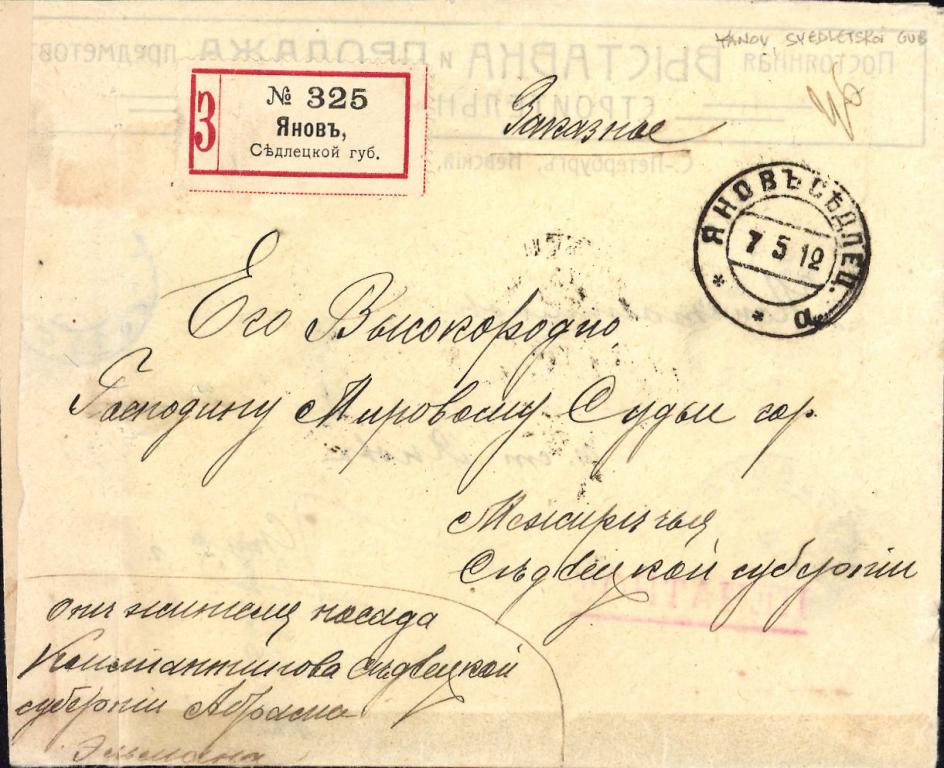 YANOV, SYEDLETSKOI GUB
Постоянная ВЫСТАВКА и ПРОДАЖА предметовъ
СТРОИТЕЛЬН
С.-Петербургъ, Невскій,
З
№ 325
Яновъ,
Сѣдлецкой губ.
Заказное
ЯНОВЪ СѢДЛЕЦ.
7 5 12
* а *
Его Высокородію
Господину Мировому Судьи гор.
Межирѣчья
Сѣдлецкой губерніи
отъ жителя посада
Константинова Сѣдлецкой
губерніи Абрама